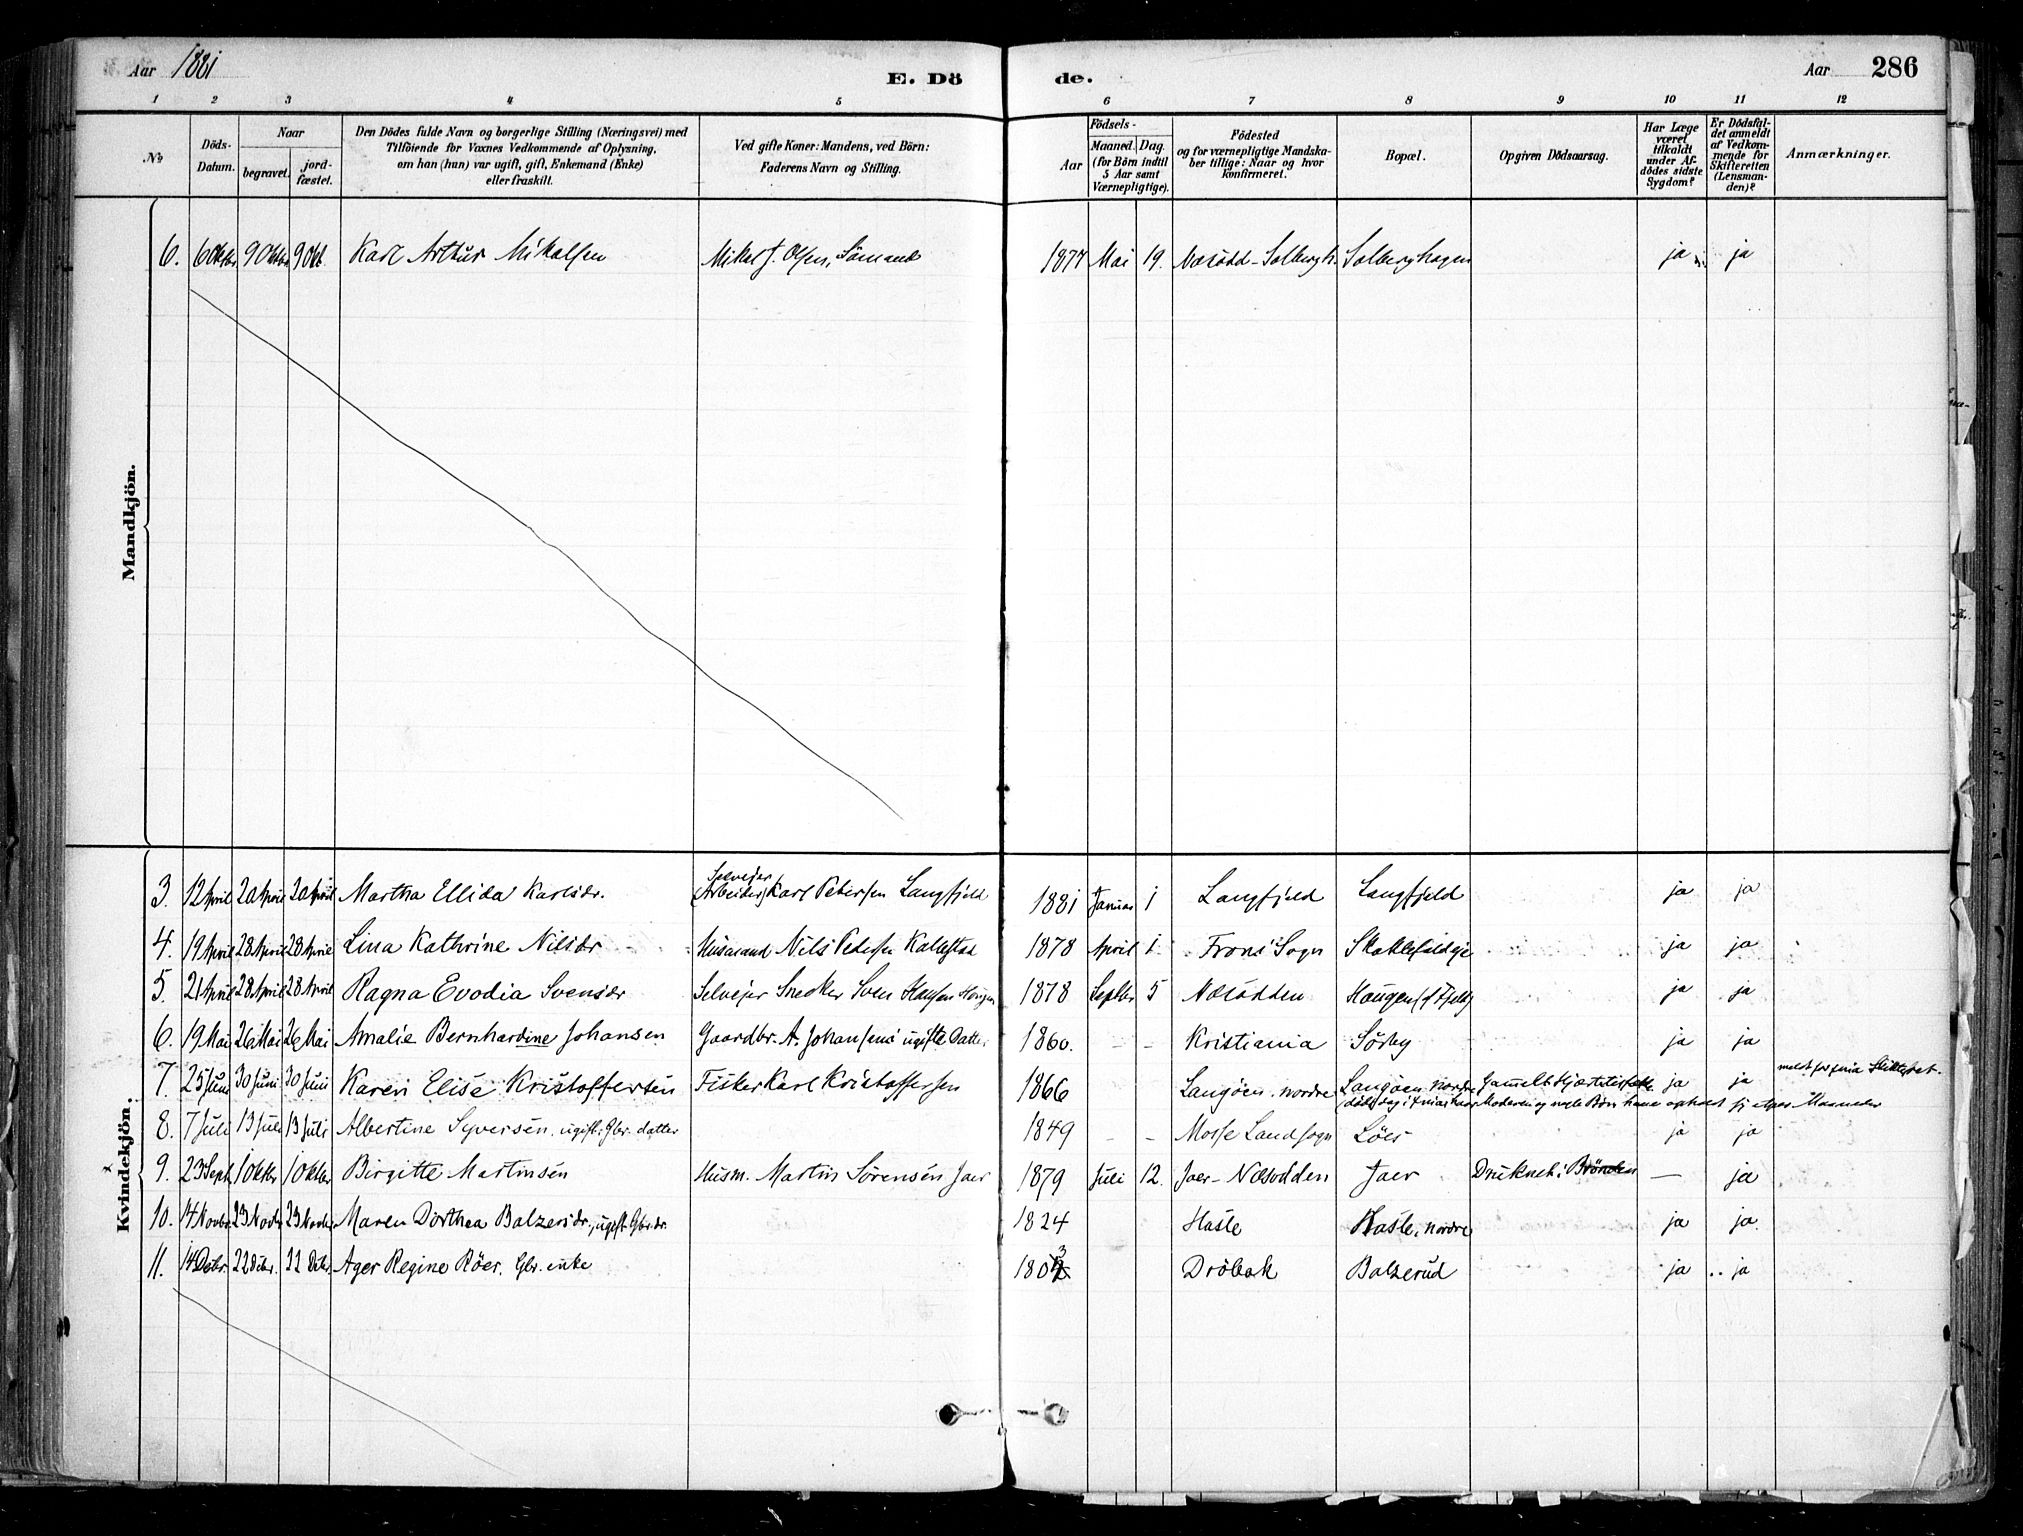 Aar 1881
E. Dö
de.
Aar 286
1 2 3 4 5 6 7 8 9 10 11 12
No
Döds-
Datum.
Naar
begravet.
jord-
fæstet.
Den Dödes fulde Navn og borgerlige Stilling (Næringsvei) med
Tilföiende for Voxnes Vedkommende af Oplysning,
om han (hun) var ugift, gift, Enkemand (Enke)
eller fraskilt.
Ved gifte Koner: Mandens, ved Börn:
Faderens Navn og Stilling.
Födsels-
Aar
Maaned.
Dag.
(for Börn indtil
5 Aar samt
Værnepligtige).
Födested
og for værnepligtige Mandska-
ber tillige: Naar og hvor
konfirmeret.
Bopæl.
Opgiven Dödsaarsag.
Har Læge
været
tilkaldt
under Af-
dödes sidste
Sygdom?
Er Dödsfal-
det anmeldt
af Vedkom-
mende for
Skifteretten
(Lensman-
den)?
Anmærkninger.
Mandkjön.
6. 6 Oktbr 9 Oktbr 9 Okt. Karl Arthur Mikalsen Olsen, Sömand 1877 Mai 19. Næsodd - Solbergh. Solberghagen ja ja
Kvindekjön.
Selveier
3. 12 April 20 April 20 April Martha Ellida Karlsdr. (Arbeider) Karl Petersen Langfjeld 1881 Januar 1 Langfjeld Langfjeld ja ja
4. 19 April 28 April 28 April Lina Kathrine Nilsdr Husmand Nils Pedersen 1878 April 1 Frons Sogn ja ja
5. 21 April 28 April 28 April Ragna Evodia Svensdr Selveier Snedker Sven Hansen Haugen 1878 Septbr 5 Næsodden Haugen ja ja
6. 19 Mai 26 Mai 26 Mai Amalie Bernhardine Johansen Gaardbr. A. Johansens ugifte Datter 1860. - - Kristiania Sörby ja ja
7. 25 Juni 30 Juni 30 Juni Karen Elise Kristoffersen Fisker Karl Kristoffersen 1866 Langöen, nordre Langöen nordre Gamelt ja ja
8. 7 Juli 13 Juli 13 Juli Albertine Syversen, ugift, Gbr. datter 1849 - - Mosse Landsogn Löes ja ja
9. 23 Sept 1 Oktbr 1 Oktbr Birgitte Martinsen Husm. Martin Sørensen Jaer 1879 Juli 12. Jaer - Næsodden Jaer Druknet i Brönden — ja
10. 14 Novbr 23 Novbr 23 Novbr Maren Dorthea Balzersdr., ugift Gbr.dr. 1824 Hasle Hasle, nordre ja ja.
11. 14 Debr. 22 Debr. 22 Debr. Ager Regine Röer. Gbr. enke 1803 Dröbak Balzerud ja ja